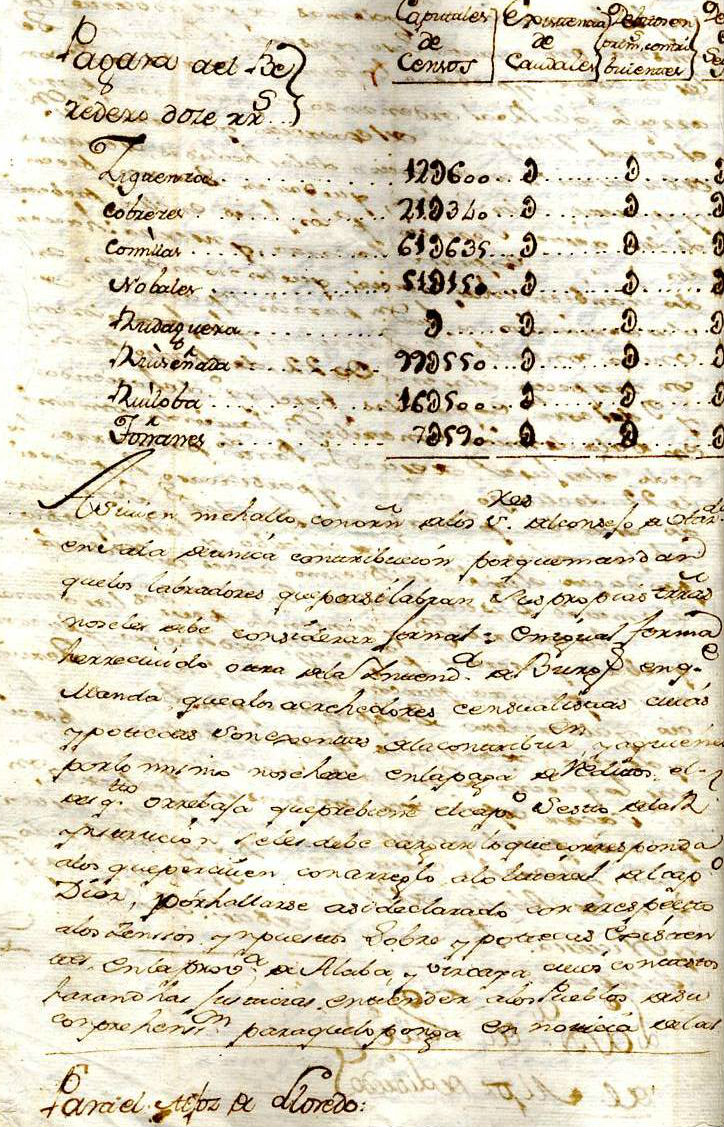 Capitales Existencia Debitos en
Pagara del Be de de prim.s contri
Censos Caudales buientes
redero doze rr.s
Ziguenza 12D600 D D D
Cobreces 21D340 D D D
Comillas 61D635 D D D
Nobales 51D150 D D D
Rudaguera D D D D
Ruiseñada 99D550 D D D
Ruiloba 16D500 D D D
Toñanes 7D590 D D D
Asi vien me hallo con orn de los S.res del consejo de
en sala de unica contribucion por que mandan
que los labradores que por si labran sus propias trras
no se les debe considerar jornal: en igual forma
he rrecivido otra de la Intend.a de Burg.s en q.e
Manda, que a los acrehedores censualistas cuias
ypotecas son exentas de la contribuz.on y a quien
por lo mismo no se haze en la paga de Reditos, el
des.to o rrebaja que prebiene el cap.o Sesto de la R
ynstruccion se les debe cargar lo que corresponda
a los que perciven con arreglo a lo literal del cap.o
Diez, por hallarse asi declarado con rrespecto
a los Zensos ynpuestos Sobre ypotecas Existen
tes en la prov.a de Alaba, y Vizcaya, cuio contesto
haran dhas Justicias entender a los Pueblos de su
conprehens.on para que lo ponga en noticia de las
Para el Alfoz de Lloredo: